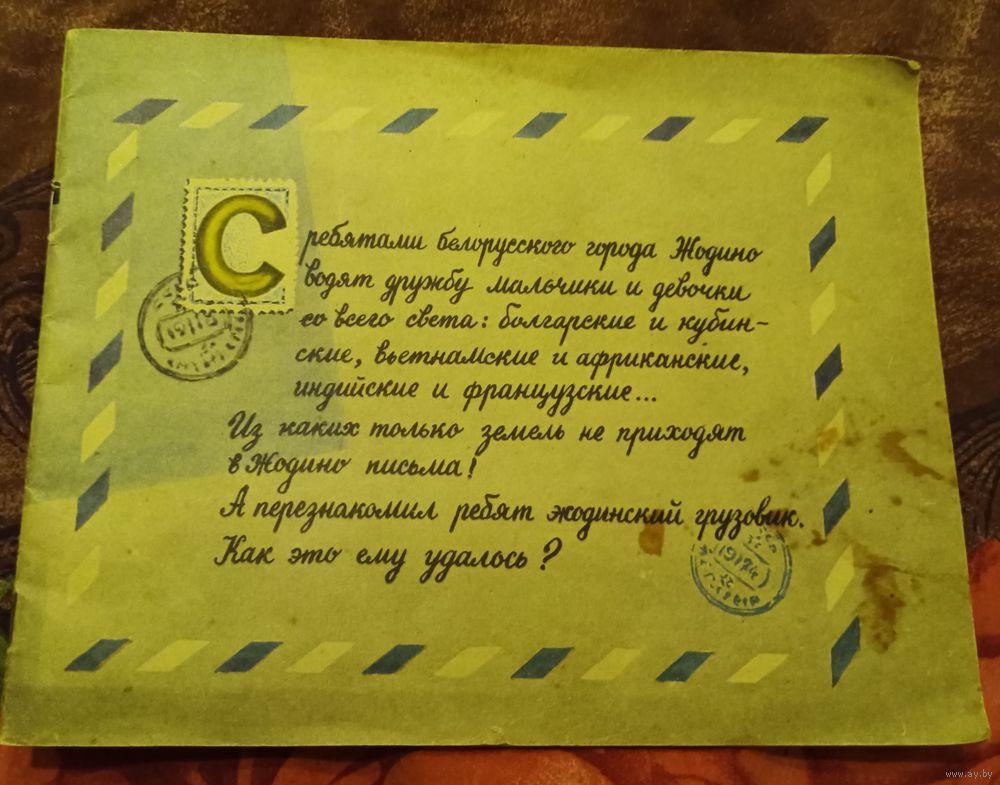 С ребятами белорусского города Жодино
водят дружбу мальчики и девочки
со всего света: болгарские и кубин-
ские, вьетнамские и африканские,
индийские и французские...
Из каких только земель не приходят
в Жодино письма!
А перезнакомил ребят жодинский грузовик.
Как это ему удалось?
www.ay.by